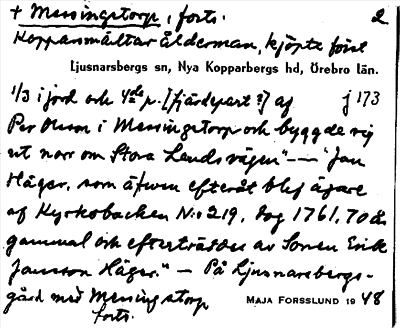 + Messingstorp, forts. 2
Kopparsmältar ålderman, kjöpte först
Ljusnarsbergs sn, Nya Kopparbergs hd, Örebro län.
1/3 i jord och 4de p. [fjärdepart?] af j 173
Per Olsson i Messingstorp och byggde sig
ut norr om Stora Landsvägen" — "Jan
Häger, som äfwen efteråt blef ägare
af Kyrkobacken N:o 219, dog 1761, 70 år
gammal och efterträddes av Sonen Erik
Jansson Häger." — På Ljusnarsbergs-
gård med Messingstorp
forts. MAJA FORSSLUND 1948